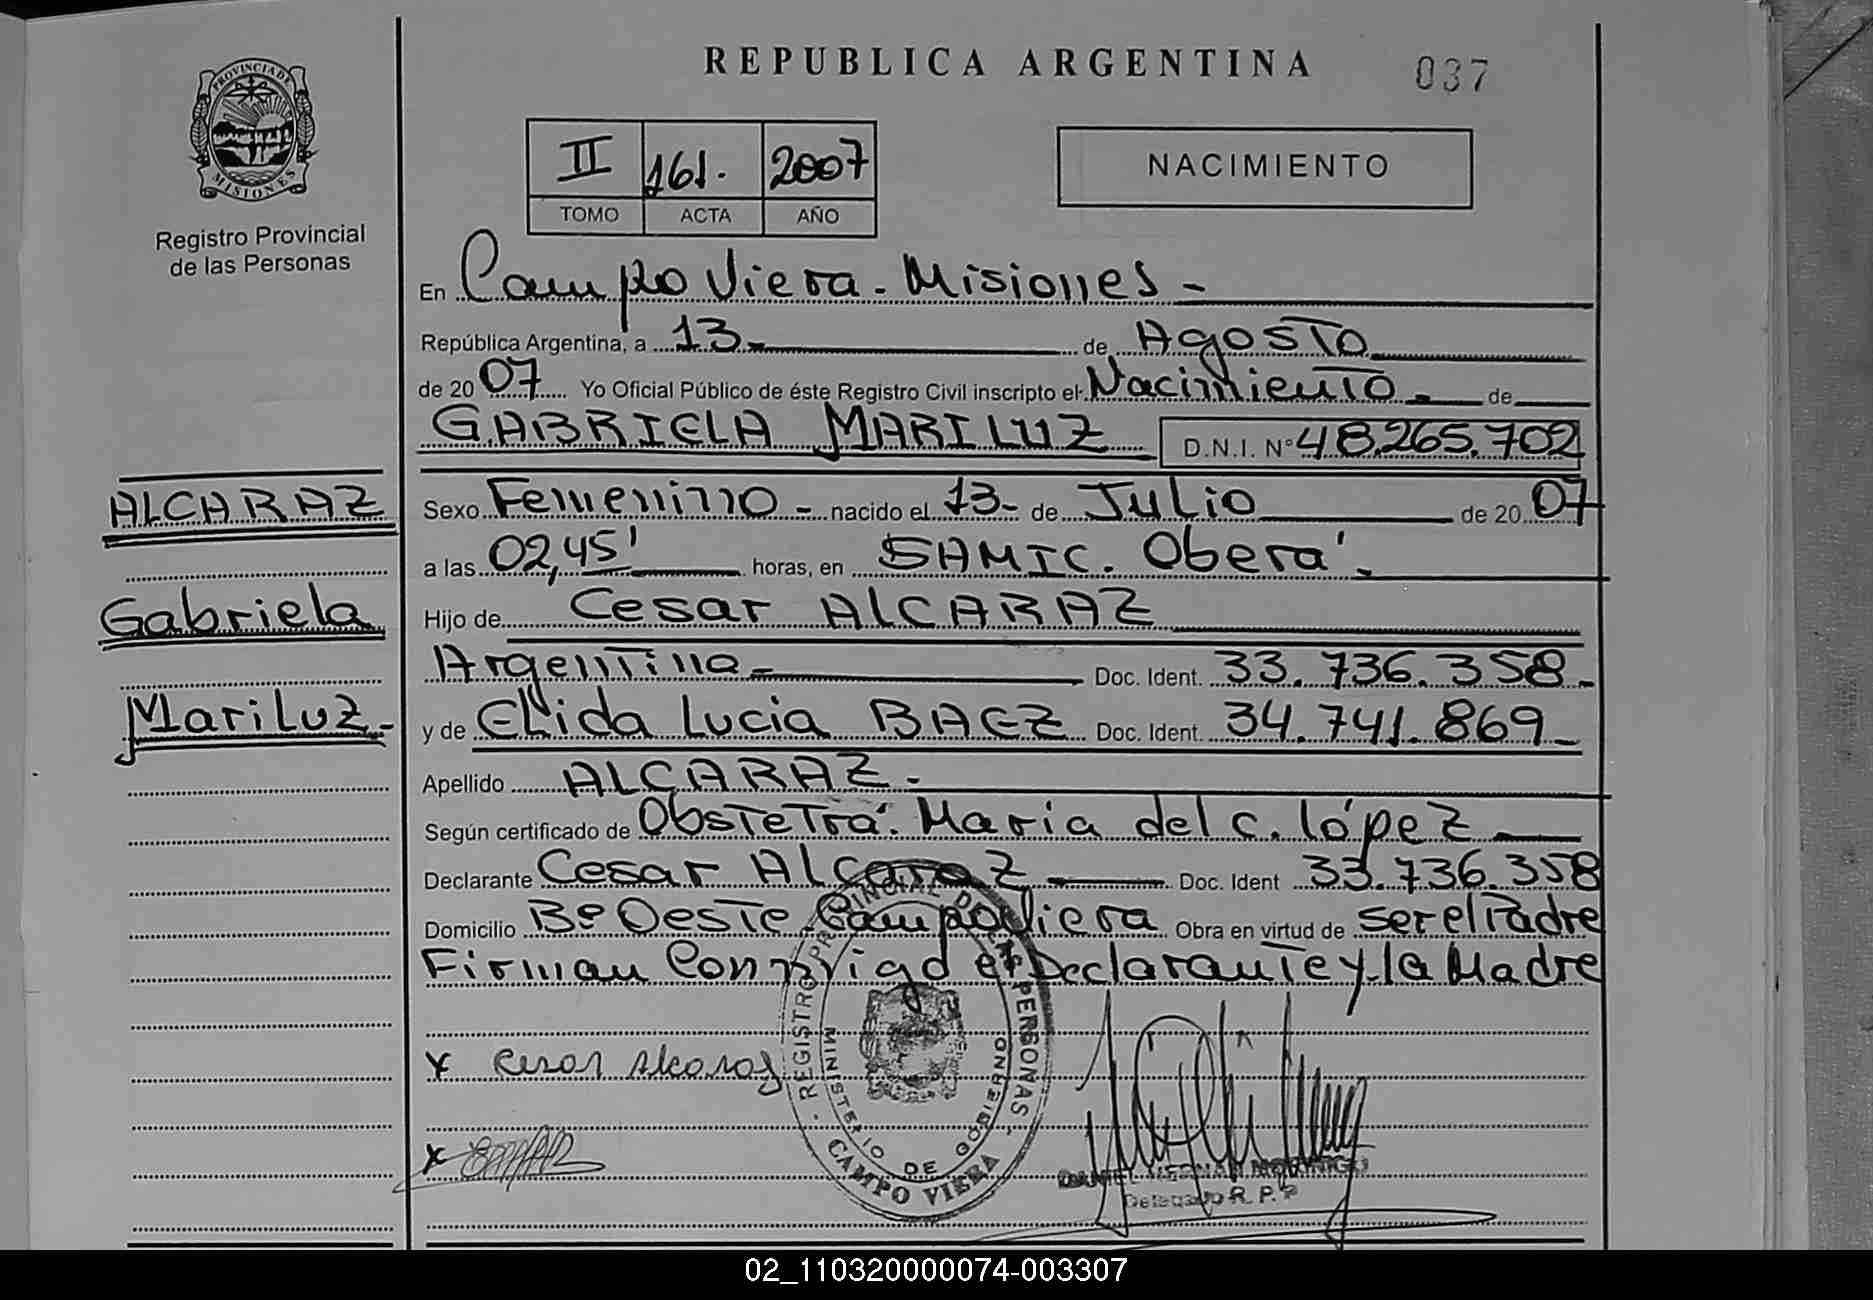 PROVINCIA DE
MISIONES
Registro Provincial
de las Personas
ALCARAZ
Gabriela
Mariluz.-
REPUBLICA ARGENTINA
037
II 161. 2007
TOMO ACTA AÑO
NACIMIENTO
En Campo Viera - Misiones -
República Argentina, a 13 - de Agosto
de 20 07 Yo Oficial Público de éste Registro Civil inscripto el Nacimiento - de
GABRIELA MARILUZ D.N.I. Nº 48.265.702
Sexo Femenino - nacido el 13 - de Julio de 20 07
a las 02,45' horas, en SAMIC. Oberá.
Hijo de Cesar ALCARAZ
Argentina - Doc. Ident. 33.736.358 -
y de Elida Lucia BAEZ Doc. Ident. 34.741.869 -
Apellido ALCARAZ -
Según certificado de Obstetra. Maria del C. López
Declarante Cesar Alcaraz Doc. Ident 33.736.358
Domicilio Bº Oeste Campo Viera Obra en virtud de ser el Padre
Firman Conmigo el Declarante y la Madre
x Cesar Alcaraz
x
REGISTRO PROVINCIAL DE LAS PERSONAS
MINISTERIO DE GOBIERNO
CAMPO VIERA
DANIEL HERNAN
Delegado R. P. P
02_110320000074-003307